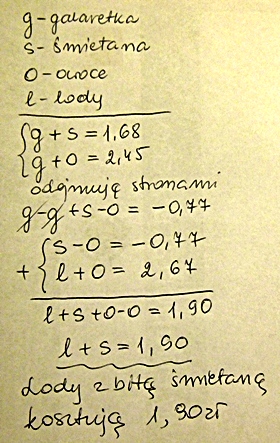 g - galaretka
s - śmietana
o - owoce
l - lody
g + s = 1,68
g + o = 2,45
odejmuję stronami
g - g + s - o = -0,77
s - o = -0,77
+ l + o = 2,67
l + s + o - o = 1,90
l + s = 1,90
Lody z bitą śmietaną
kosztują 1,90 zł